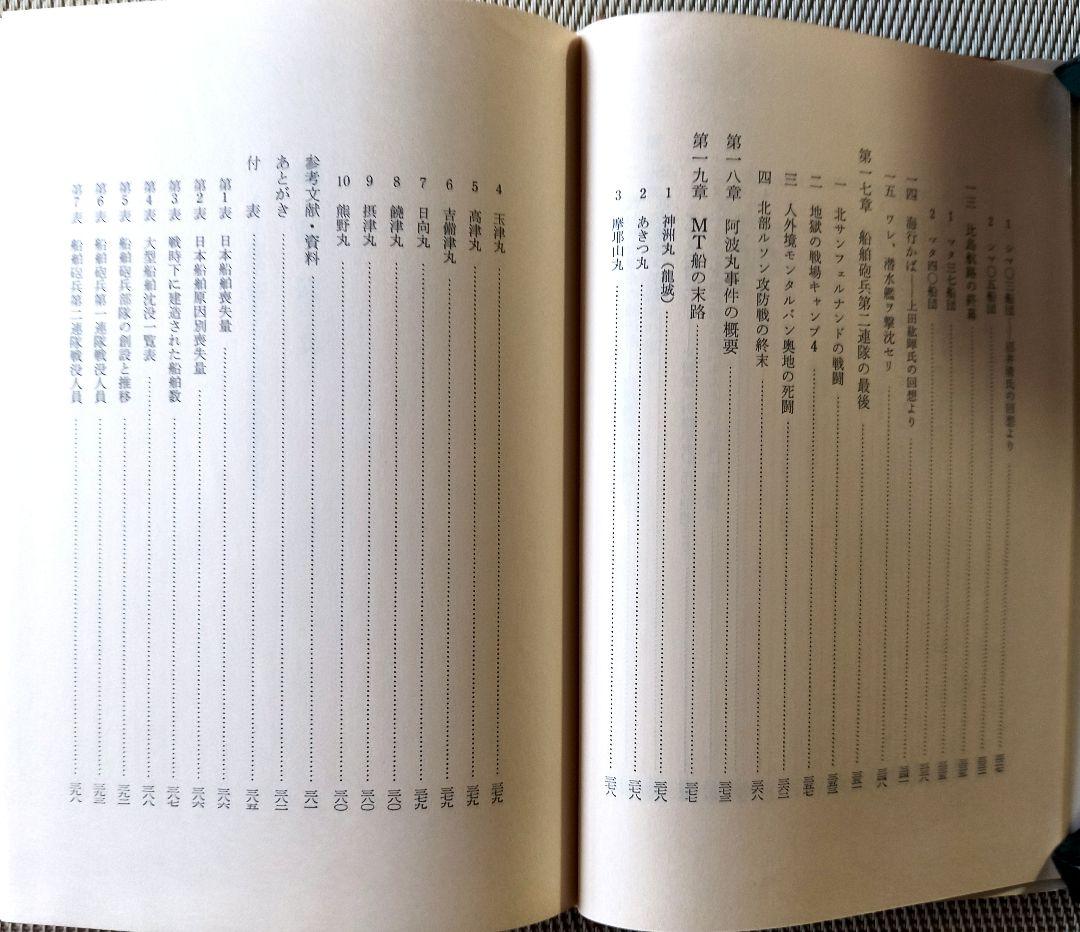 1 シマ〇三船団
2 シマ〇五船団
一三 比島航路の終幕
1 マタ三七船団
2 マタ四〇船団
一四 海行かば――上田紘暉氏の回想より
一五 ワレ、潜水艦ヲ撃沈セリ
第一七章 船舶砲兵第二連隊の最後 三五一
一 北サンフェルナンドの戦闘 三五三
二 地獄の戦場キャンプ4 三五七
三 人外境モンタルバン奥地の死闘 三六二
四 北部ルソン攻防戦の終末 三六八
第一八章 阿波丸事件の概要 三七三
第一九章 MT船の末路 三七七
1 神洲丸(龍城) 三七八
2 あきつ丸 三七八
3 摩耶山丸 三七八
4 玉津丸 三七九
5 高津丸 三七九
6 吉備津丸 三七九
7 日向丸 三七九
8 饒津丸 三八〇
9 摂津丸 三八〇
10 熊野丸 三八〇
参考文献・資料 三八一
あとがき 三八二
付 表 三八五
第1表 日本船舶喪失量 三八六
第2表 日本船舶原因別喪失量 三八六
第3表 戦時下に建造された船舶数 三八七
第4表 大型船舶沈没一覧表 三八八
第5表 船舶砲兵部隊の創設と推移 三九二
第6表 船舶砲兵第一連隊戦没人員 三九三
第7表 船舶砲兵第二連隊戦没人員 三九八